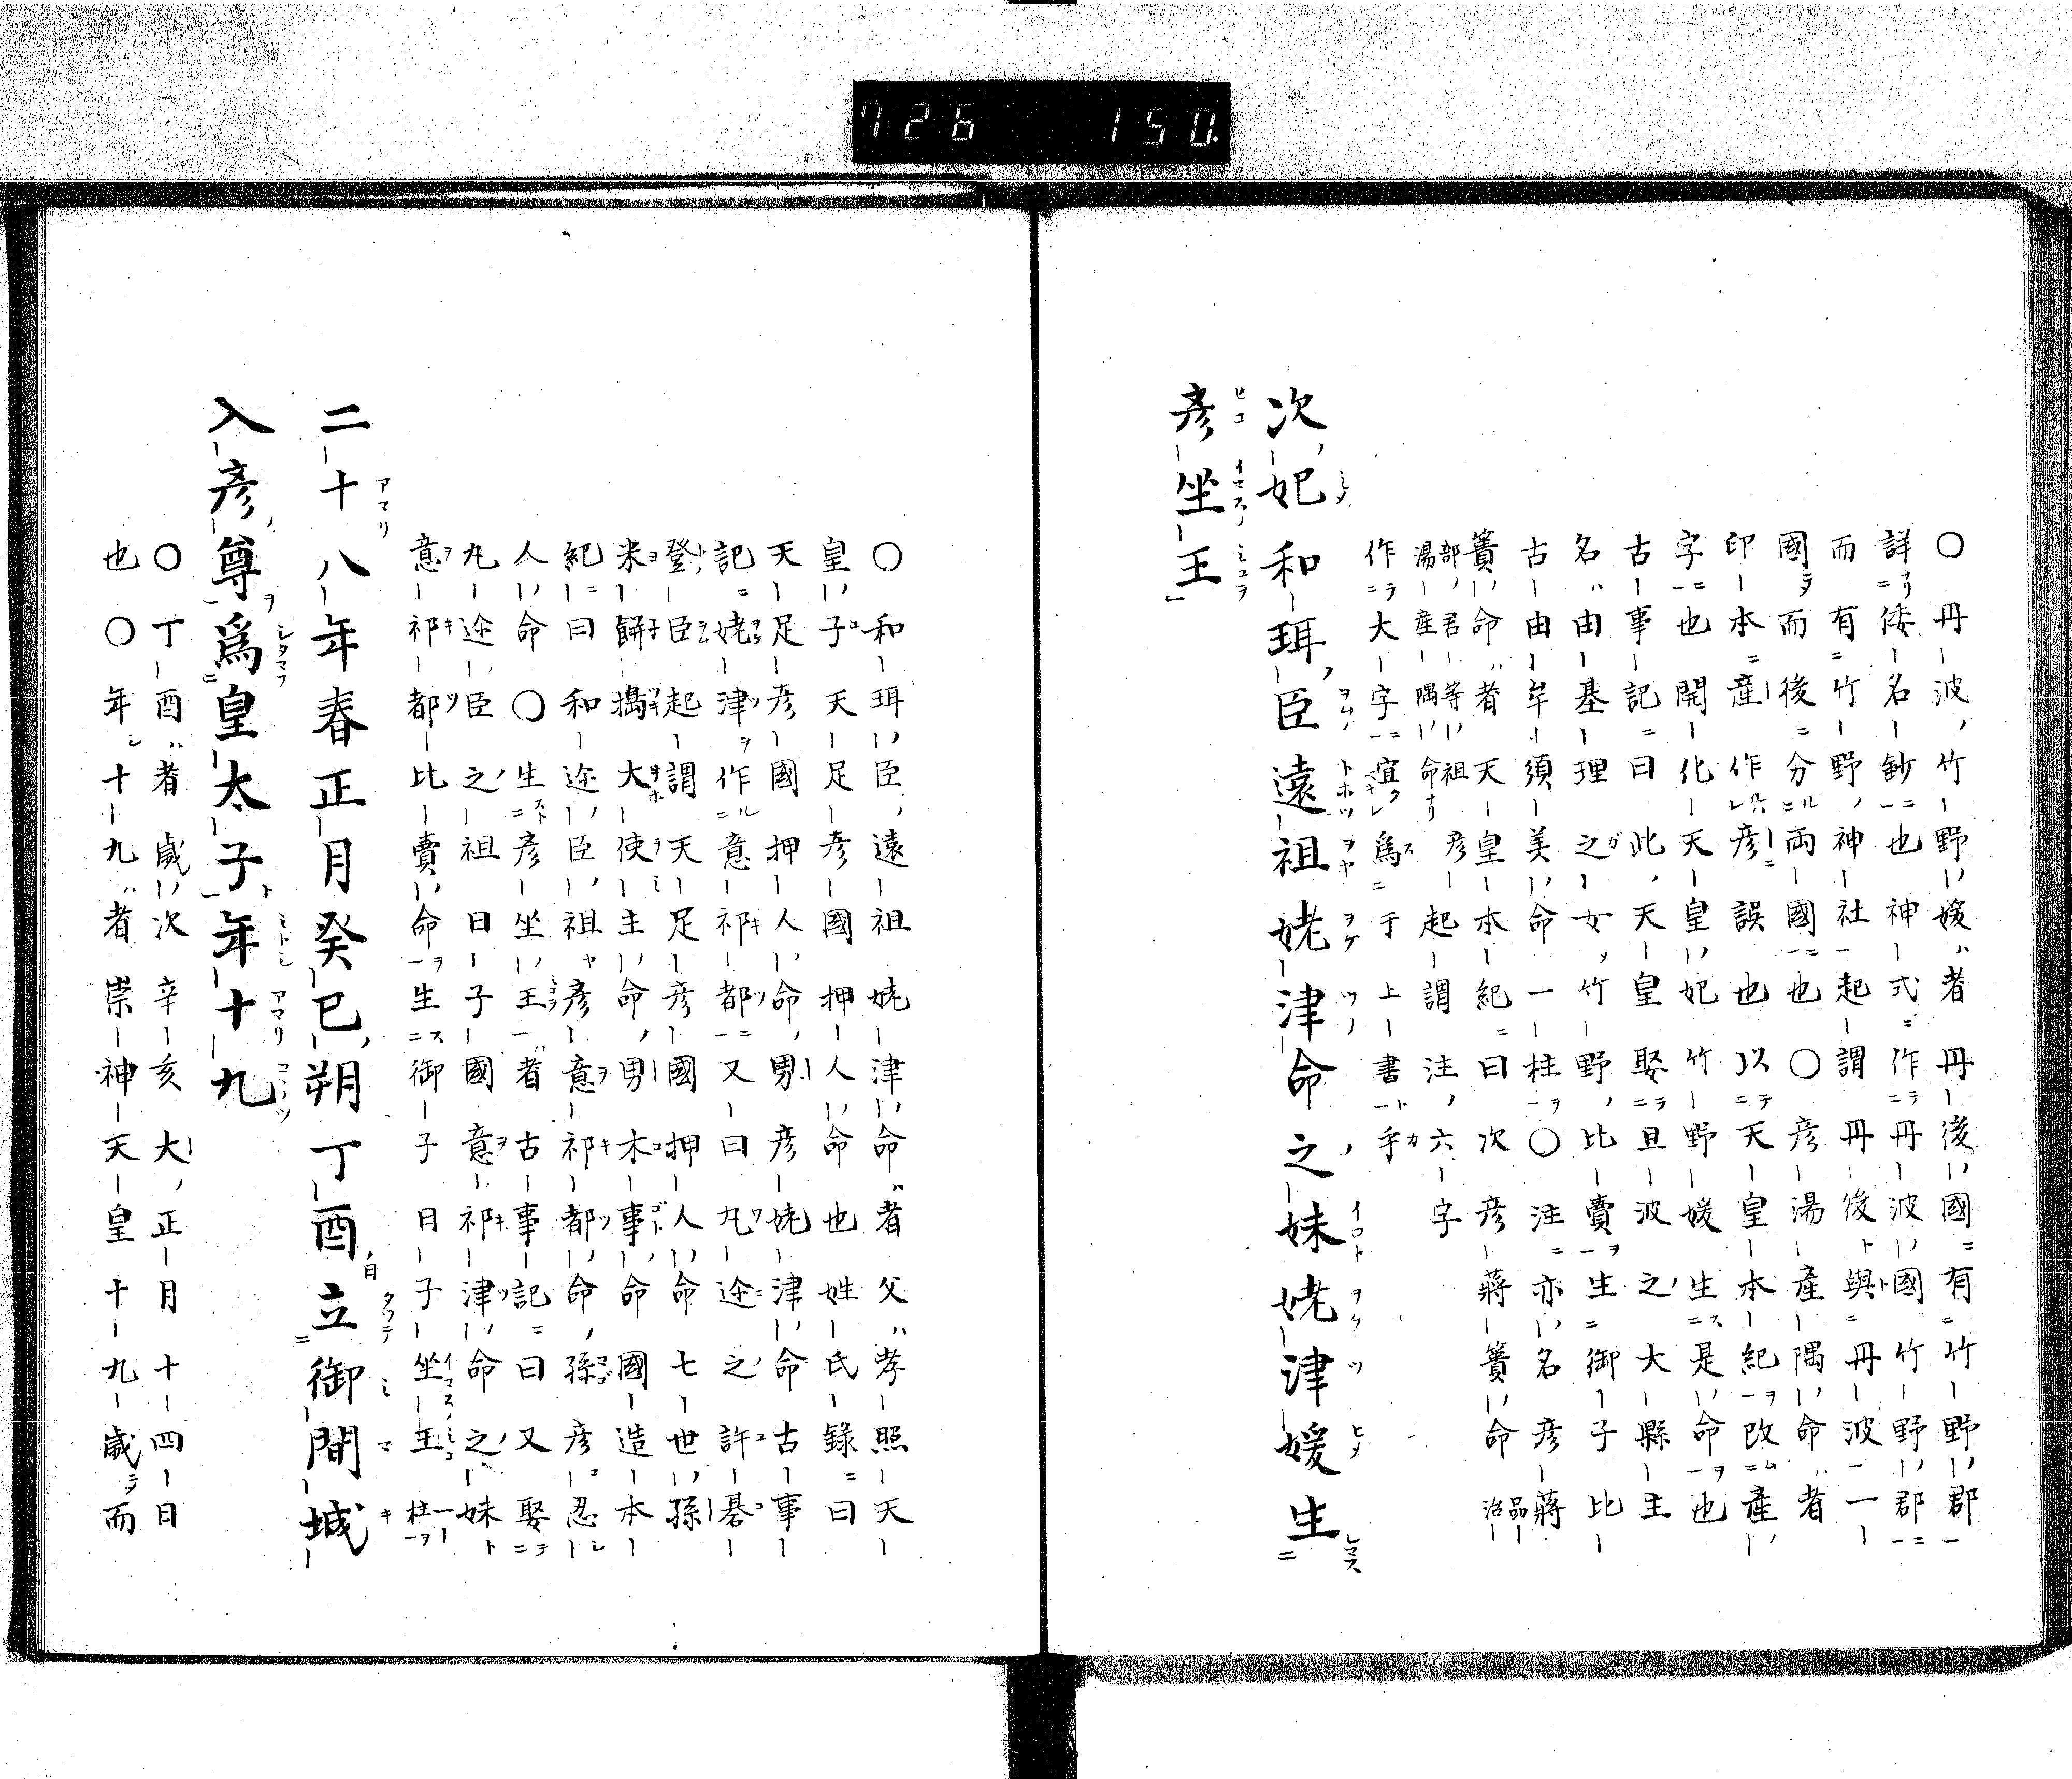 726 150.
〇丹波竹野媛者丹後國有竹野郡
詳倭名鈔也神式作丹波國竹野郡
而有竹野神社起謂丹後與丹波一
國而後分両國也〇彦湯產隅命者
印本產作彦誤也以天皇本紀改產
字也開化天皇妃竹野媛生是命也
古事記曰此天皇娶旦波之大縣主
名由基理之女竹野比賣生御子比
古由牟須美命一柱〇注亦名彦蔣
簀命者天皇本紀曰次彦蔣簀命品治
部君等祖湯產隅命彦起謂注六字
作大字宜為于上書手
次妃和珥臣遠祖姥津命之妹姥津媛生
彦坐王
〇和珥臣遠祖姥津命者父孝照天
皇子天足彦國押人命也姓氏錄曰
天足彦國押人命男彦姥津命古事
記姥津作意祁都又曰丸迩之許碁
登臣起謂天足彦國押人命七世孫
米餅搗大使主命男木事命國造本
紀曰和迩臣祖彦意祁都命孫彦忍
人命〇生彦坐王者古事記曰又娶
丸迩臣之祖日子國意祁津命之妹
意祁都比賣命生御子日子坐王一柱
二十八年春正月癸巳朔丁酉日立御間城
入彦尊為皇太子年十九
〇丁酉者歲次辛亥大正月十四日
也〇年十九者崇神天皇十九歲而